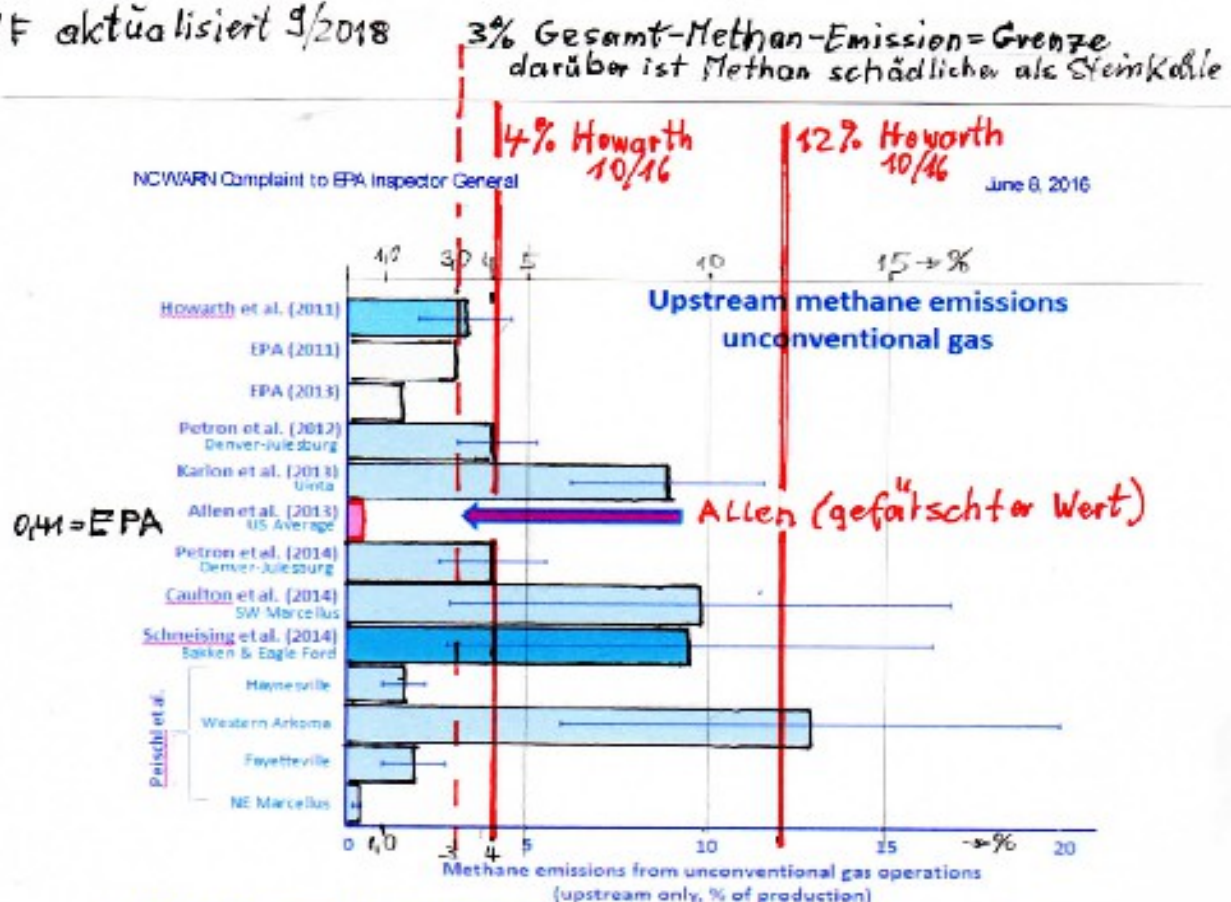 F aktualisiert 9/2018
3% Gesamt-Methan-Emission=Grenze
darüber ist Methan schädlicher als Steinkohle
4% Howarth
10/16
12% Howorth
10/16
NCWARN Complaint to EPA Inspector General
June 8, 2016
1,0 3,0 4 5 10 15 → %
Upstream methane emissions
unconventional gas
Howarth et al. (2011)
EPA (2011)
EPA (2013)
Petron et al. (2012)
Denver-Julesburg
Karion et al. (2013)
Uinta
0,41=EPA
Allen et al. (2013)
US Average
ALLEN (gefälschter Wert)
Petron et al. (2014)
Denver-Julesburg
Caulton et al. (2014)
SW Marcellus
Schneising et al. (2014)
Bakken & Eagle Ford
Peischl et al.
Haynesville
Western Arkoma
Fayetteville
NE Marcellus
0 1,0 3 4 5 10 15 → % 20
Methane emissions from unconventional gas operations
(upstream only, % of production)